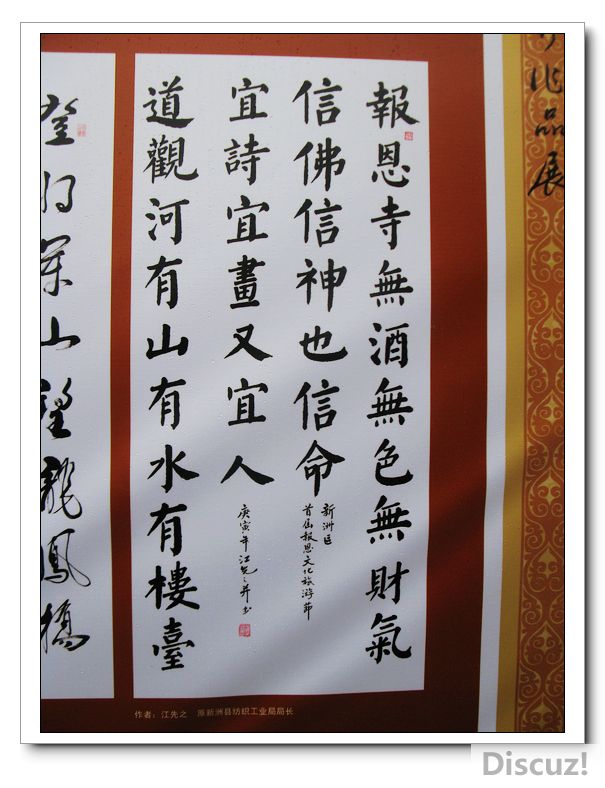 作品展
報恩寺無酒無色無財氣
信佛信神也信命
新洲区
首届报恩文化旅游節
宜詩宜畫又宜人
庚寅年江先之并书
道觀河有山有水有樓臺
山望龍鳳橋
作者：江先之 原新洲县纺织工业局局长
Discuz!